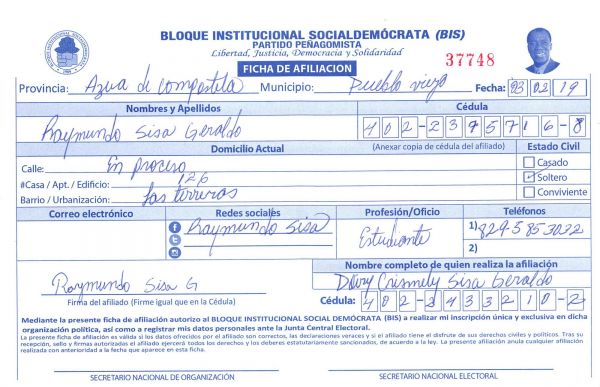 BLOQUE INSTITUCIONAL SOCIALDEMÓCRATA (BIS)
PARTIDO PEÑAGOMISTA
Libertad, Justicia, Democracia y Solidaridad
37748
FICHA DE AFILIACION
Provincia: Azua de compostela Municipio: Pueblo viejo Fecha: 03 02 19
Nombres y Apellidos Cédula
Raymundo Sisa Geraldo 402-2395716-8
Domicilio Actual (Anexar copia de cédula del afiliado) Estado Civil
Calle: En proceso Casado
#Casa / Apt. / Edificio: 126 Soltero
Barrio / Urbanización: Las terreras Conviviente
Correo electrónico Redes sociales Profesión/Oficio Teléfonos
Raymundo Sisa Estudiante 1) 829 5853022
2)
Nombre completo de quien realiza la afiliación
Raymundo Sisa G Crismely Sisa Geraldo
Firma del afiliado (Firme igual que en la Cédula) Cédula: 402-2433210-2
Mediante la presente ficha de afiliación autorizo al BLOQUE INSTITUCIONAL SOCIAL DEMÓCRATA (BIS) a realizar mi inscripción única y exclusiva en dicha
organización política, así como a registrar mis datos personales ante la Junta Central Electoral.
La presente ficha de afiliación es válida si los datos ofrecidos por el afiliado son correctos, las declaraciones veraces y si el afiliado tiene el disfrute de sus derechos civiles y políticos. Tras su
recepción, sello y firmas autorizadas el afiliado ejercerá todos los derechos y los deberes estatutariamente sancionados, de acuerdo a la ley. La presente afiliación anula cualquier afiliación
realizada con anterioridad a la fecha que aparece en esta ficha.
SECRETARIO NACIONAL DE ORGANIZACIÓN SECRETARIO NACIONAL ELECTORAL